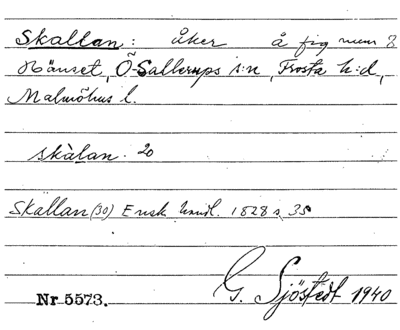 Skallan: åker å fig num 8
Hänset, Ö-Sallerups s:n, Frosta h:d,
Malmöhus l.
skàlan. 20
Skallan (30) Ensk handl. 1828 s 35
G. Sjöstedt 1940
Nr 5573.